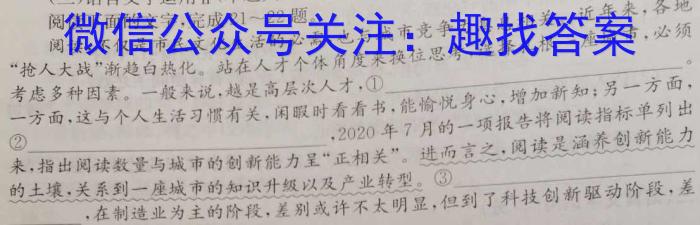 阅读下面的文字,完成21~22题
微信公众号关注：趣找答案
近年来,各地
“抢人大战”渐趋白热化。站在人才个体角度来换位思考
必须
考虑多种因素。一般来说,越是高层次人才,①。
一方面,这与个人生活习惯有关,闲暇时看看书,能愉悦身心,增加新知;另一方面,
②,2020年7月的一项报告将阅读指标单列出
来,指出阅读数量与城市的创新能力呈“正相关”。进而言之,阅读是涵养创新能力
的土壤,关系到一座城市的知识升级以及产业转型。③
,在制造业为主的阶段,差别或许不太明显,但到了科技创新驱动阶段,差